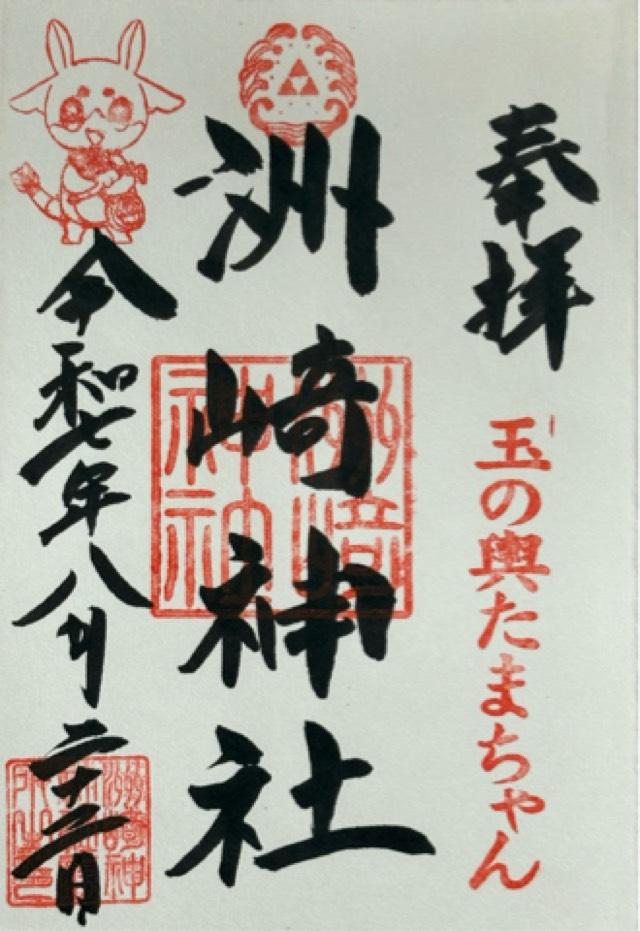 奉拝
玉の輿たまちゃん
洲崎神社
洲崎
神社
令和七年八月二十三日
洲崎神